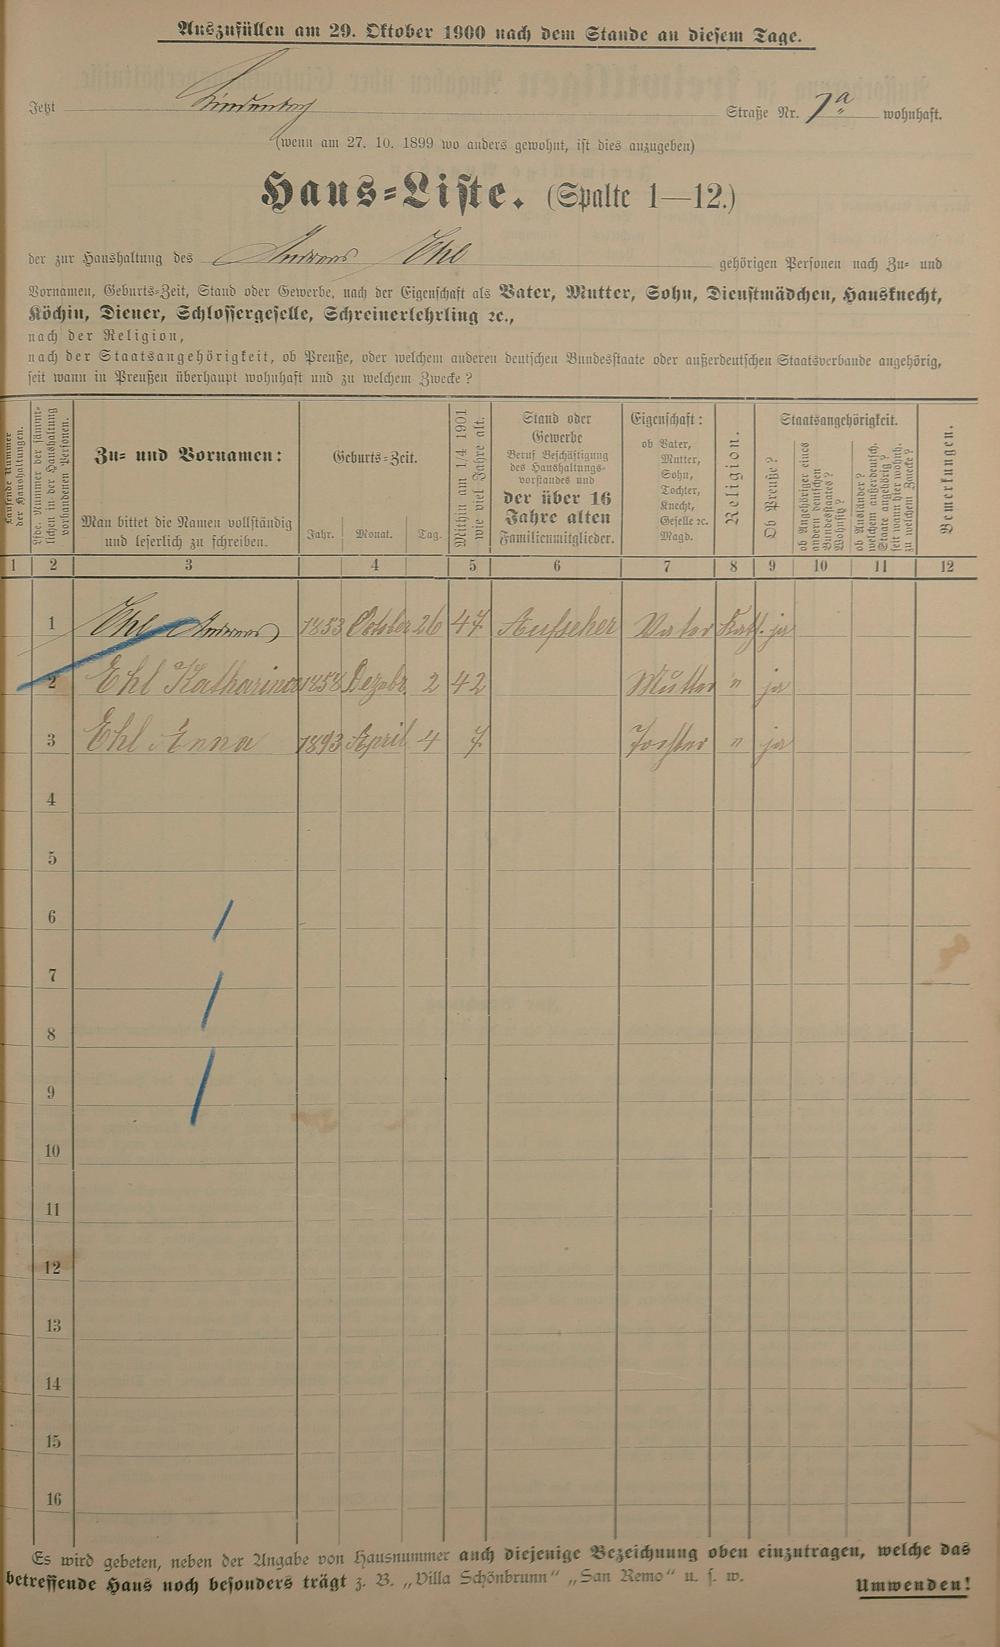 Auszufüllen am 29. Oktober 1900 nach dem Stande an diesem Tage.
Jetzt Lindenburg Straße Nr. 7a wohnhaft.
(wenn am 27. 10. 1899 wo anders gewohnt, ist dies anzugeben)
Haus-Liste. (Spalte 1—12.)
der zur Haushaltung des Andreas Ehl gehörigen Personen nach Zu- und
Vornamen, Geburts-Zeit, Stand oder Gewerbe, nach der Eigenschaft als Vater, Mutter, Sohn, Dienstmädchen, Hausknecht,
Köchin, Diener, Schlossergeselle, Schreinerlehrling ꝛc.,
nach der Religion,
nach der Staatsangehörigkeit, ob Preuße, oder welchem anderen deutschen Bundesstaate oder außerdeutschen Staatsverbande angehörig,
seit wann in Preußen überhaupt wohnhaft und zu welchem Zwecke?
Laufende Nummer der Haushaltungen.
Lfde. Nummer der sämmtlichen in der Haushaltung vorhandenen Personen.
Zu- und Vornamen:
Man bittet die Namen vollständig
und leserlich zu schreiben.
Geburts-Zeit.
Jahr. Monat. Tag.
Mithin am 1/4 1901
wie viel Jahre alt.
Stand oder
Gewerbe
Beruf Beschäftigung
des Haushaltungs-
vorstandes und
der über 16
Jahre alten
Familienmitglieder.
Eigenschaft:
ob Vater,
Mutter,
Sohn,
Tochter,
Knecht,
Geselle ꝛc.
Magd.
Religion.
Staatsangehörigkeit.
Ob Preuße?
ob Angehöriger eines
andern deutschen
Bundesstaates?
Wohnsitz?
ob Ausländer?
welchem außerdeutsch.
Staate angehörig?
seit wann hier wohnh.
zu welchem Zwecke?
Bemerkungen.
1 2 3 4 5 6 7 8 9 10 11 12
1 Ehl Andreas 1853 October 26 47 Aufseher Vater Kath. ja
2 Ehl Katharina 1858 Dezebr 2 42 Mutter " ja
3 Ehl Anna 1893 April 4 7 Tochter " ja
4
5
6
7
8
9
10
11
12
13
14
15
16
Es wird gebeten, neben der Angabe von Hausnummer auch diejenige Bezeichnung oben einzutragen, welche das
betreffende Haus noch besonders trägt z. B. „Villa Schönbrunn" „San Remo" u. s. w.
Umwenden!